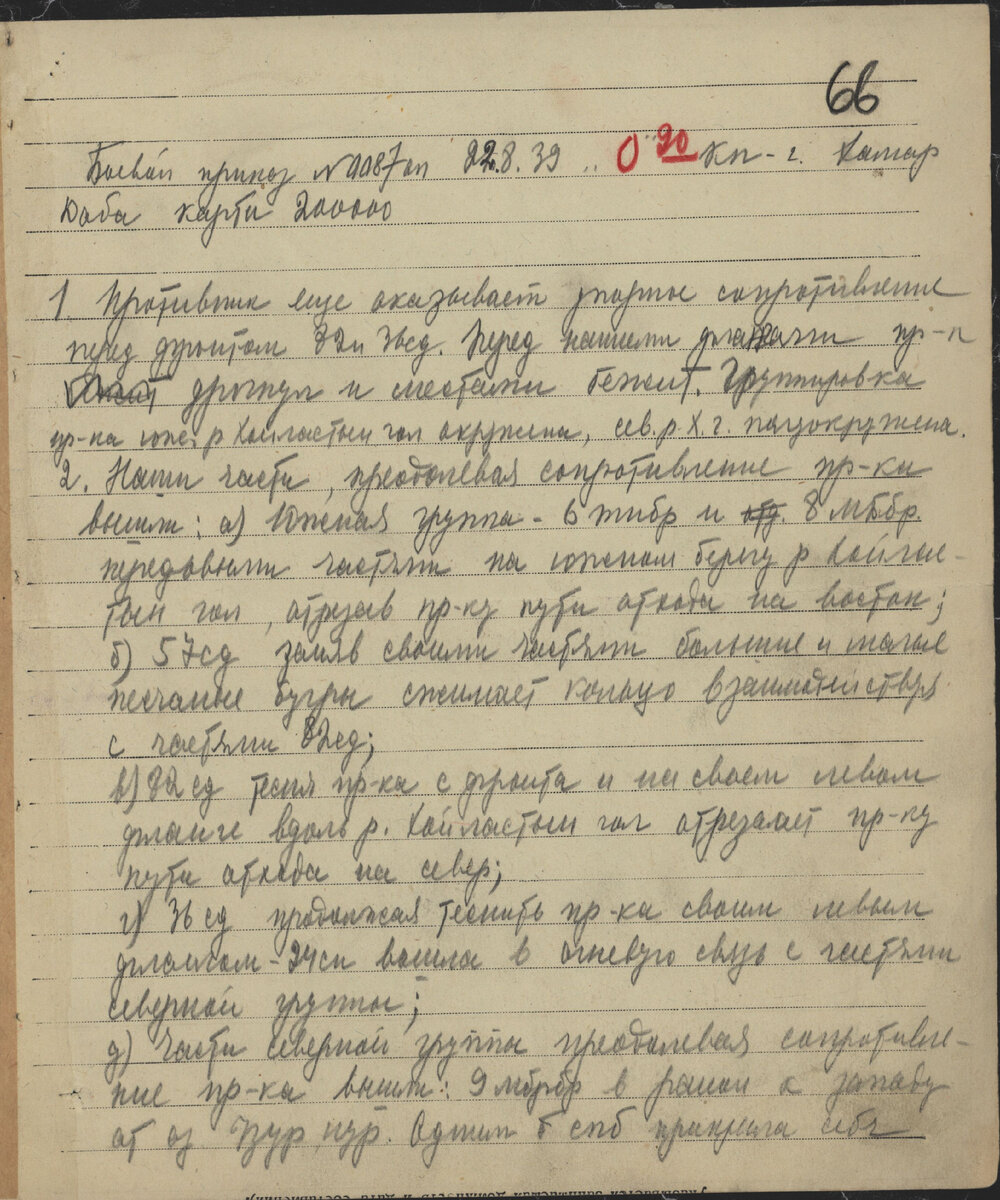 66
Боевой приказ N 0087/оп 22.8.39 .. 0 30 Кп - г. Хамар
Даба карты 200000
1. Противник еще оказывает упорное сопротивление
перед фронтом 82 и 36сд. Перед нашими флангами пр-к
дрогнул и местами бежит. Группировка
пр-ка южн. р Хайластын гол окружена, сев. р. Х. г. полуокружена.
2. Наши части, преодолевая сопротивление пр-ка
вышли: а) Южная группа - 6 тнбр и 8 мббр.
передовыми частями на южном берегу р Хайлас-
тын гол, отрезав пр-ку пути отхода на восток;
б) 57сд заняв своими частями большие и малые
песчаные бугры сжимает кольцо взаимодействуя
с частями 82сд;
в) 82 сд тесня пр-ка с фронта и на своем левом
фланге вдоль р. Хайластын гол отрезает пр-ку
пути отхода на север;
г) 36 сд продолжая теснить пр-ка своим левым
флангом - 24сп вошла в огневую связь с частями
северной группы;
д) Части северной группы преодолевая сопротивле-
ние пр-ка вышли: 9 мбрбр в район к западу
от оз Узур нур. Одним б спб прикрыла себя